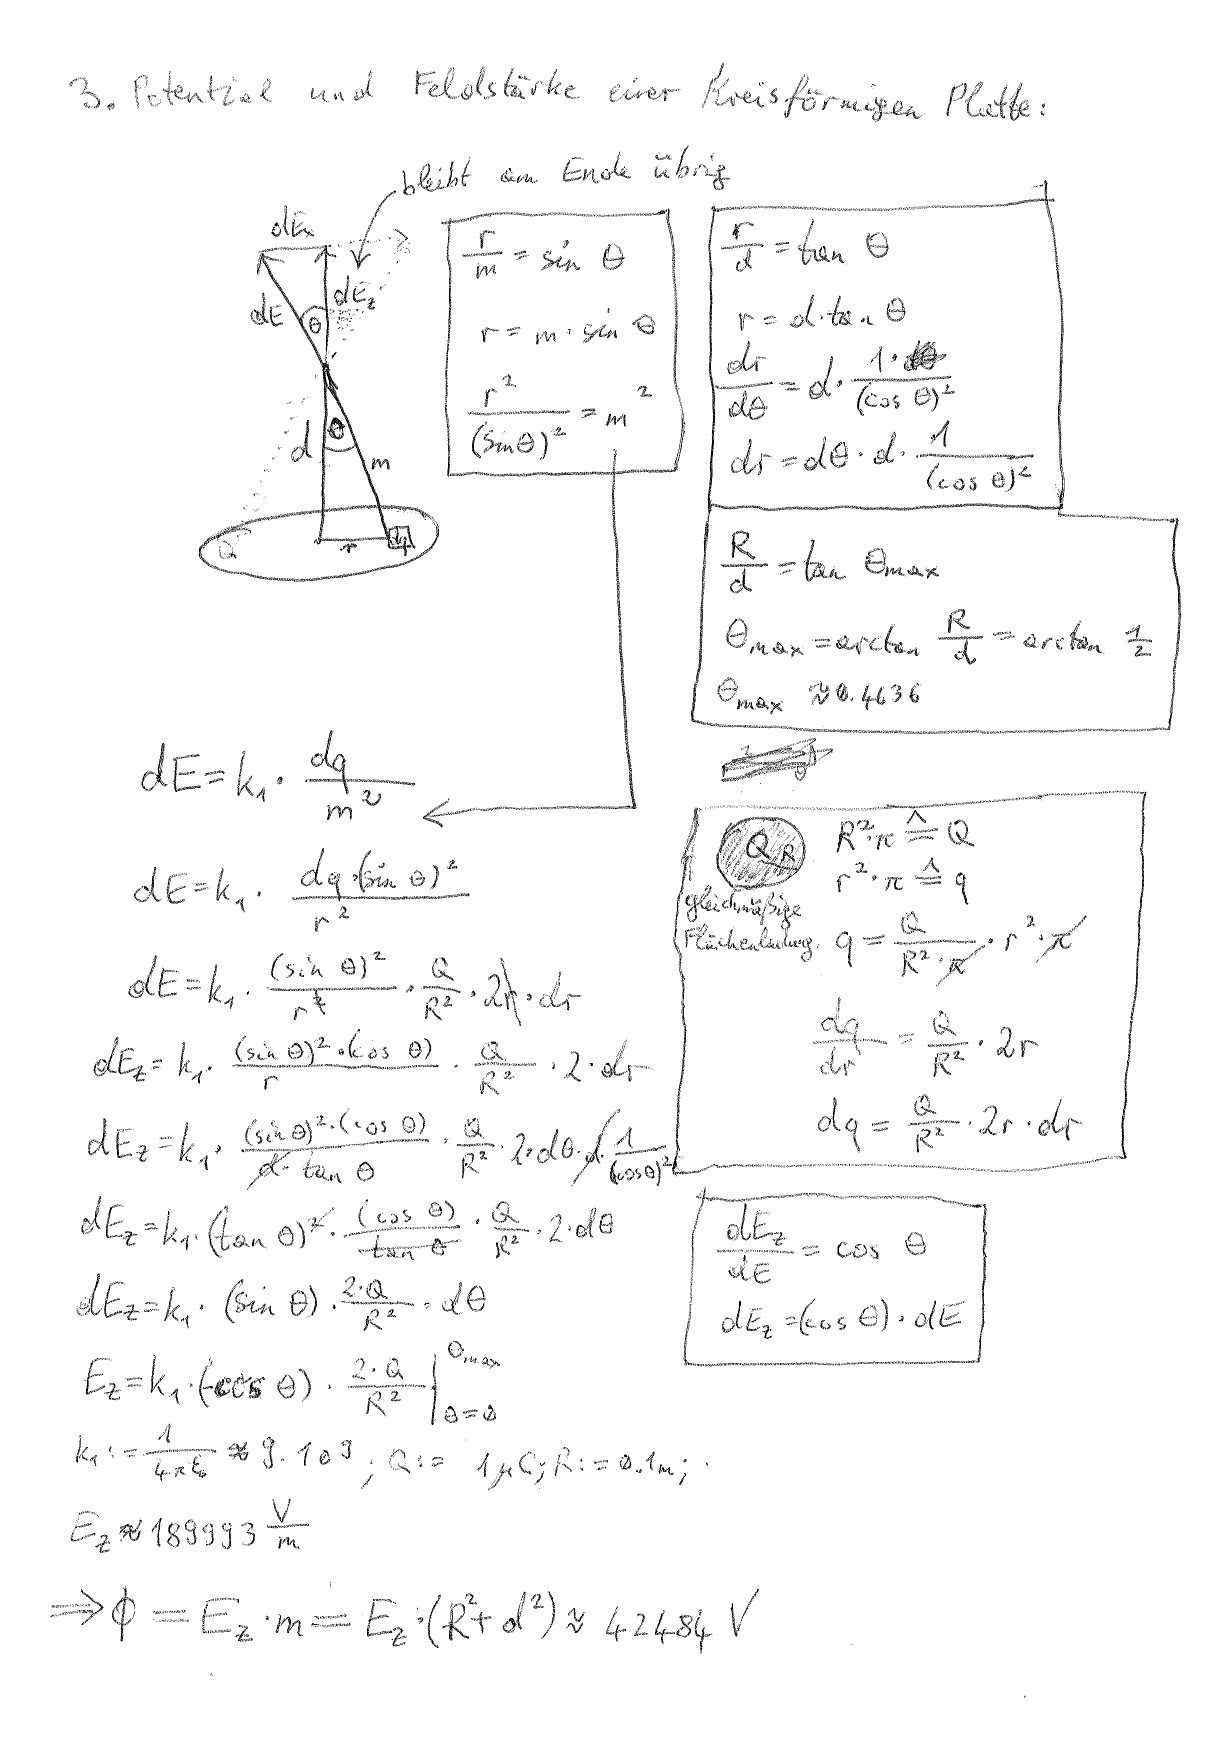 3. Potential und Feldstärke einer Kreisförmigen Platte:
bleibt am Ende übrig
dEx
dE
θ
dEz
d
θ
m
Q
r
dq
r/m = sin θ
r = m · sin θ
r²/(sin θ)² = m²
r/d = tan θ
r = d·tan θ
dr/dθ = d · 1/(cos θ)²
dr = dθ · d · 1/(cos θ)²
R/d = tan θmax
θmax = arctan R/d = arctan 1/2
θmax ≈ 0.4636
dE = k₁ · dq/m²
dE = k₁ · dq·(sin θ)²/r²
dE = k₁ · (sin θ)²/r² · Q/R² · 2r · dr
dEz = k₁ · (sin θ)²·(cos θ)/r · Q/R² · 2 · dr
dEz = k₁ · (sin θ)²·(cos θ)/(d · tan θ) · Q/R² · 2 · dθ · d · 1/(cos θ)²
dEz = k₁ · (tan θ)² · (cos θ)/tan θ · Q/R² · 2 · dθ
dEz = k₁ · (sin θ) · 2·Q/R² · dθ
Ez = k₁ · (-cos θ) · 2·Q/R² |θmax θ=0
k₁ := 1/4πε₀ ≈ 9·10⁹; Q := 1μC; R := 0.1m;
Ez ≈ 189993 V/m
⇒ ϕ = Ez · m = Ez · (R² + d²) ≈ 42484 V
Q R
gleichmäßige
Flächenladung
R²·π ≙ Q
r²·π ≙ q
q = Q/(R²·π) · r² · π
dq/dr = Q/R² · 2r
dq = Q/R² · 2r · dr
dEz/dE = cos θ
dEz = (cos θ) · dE